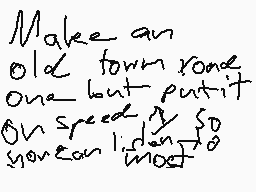 Make an
old town road
one but put it
on speed so
you can listen to
most